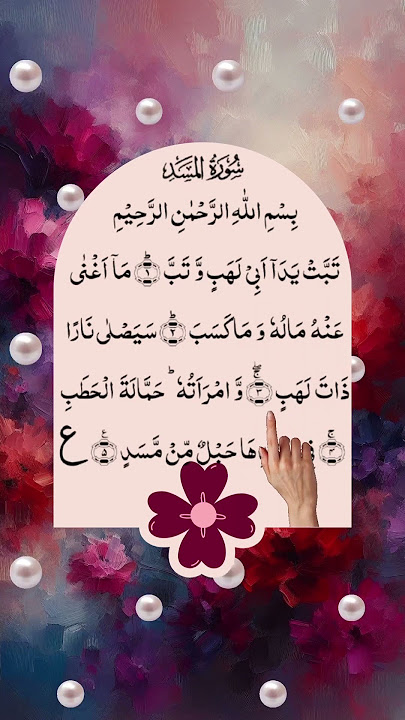 سُوْرَةُ الْمَسَدِ
بِسْمِ اللّٰهِ الرَّحْمٰنِ الرَّحِيْمِ
تَبَّتْ يَدَاۤ اَبِيْ لَهَبٍ وَّ تَبَّ ﴿۱﴾ مَاۤ اَغْنٰى
عَنْهُ مَالُهٗ وَ مَا كَسَبَ ﴿۲﴾ سَيَصْلٰى نَارًا
ذَاتَ لَهَبٍ ﴿۳﴾ وَّ امْرَاَتُهٗ ؕ حَمَّالَةَ الْحَطَبِ
﴿۴﴾ هَا حَبْلٌ مِّنْ مَّسَدٍ ﴿۵﴾ ع